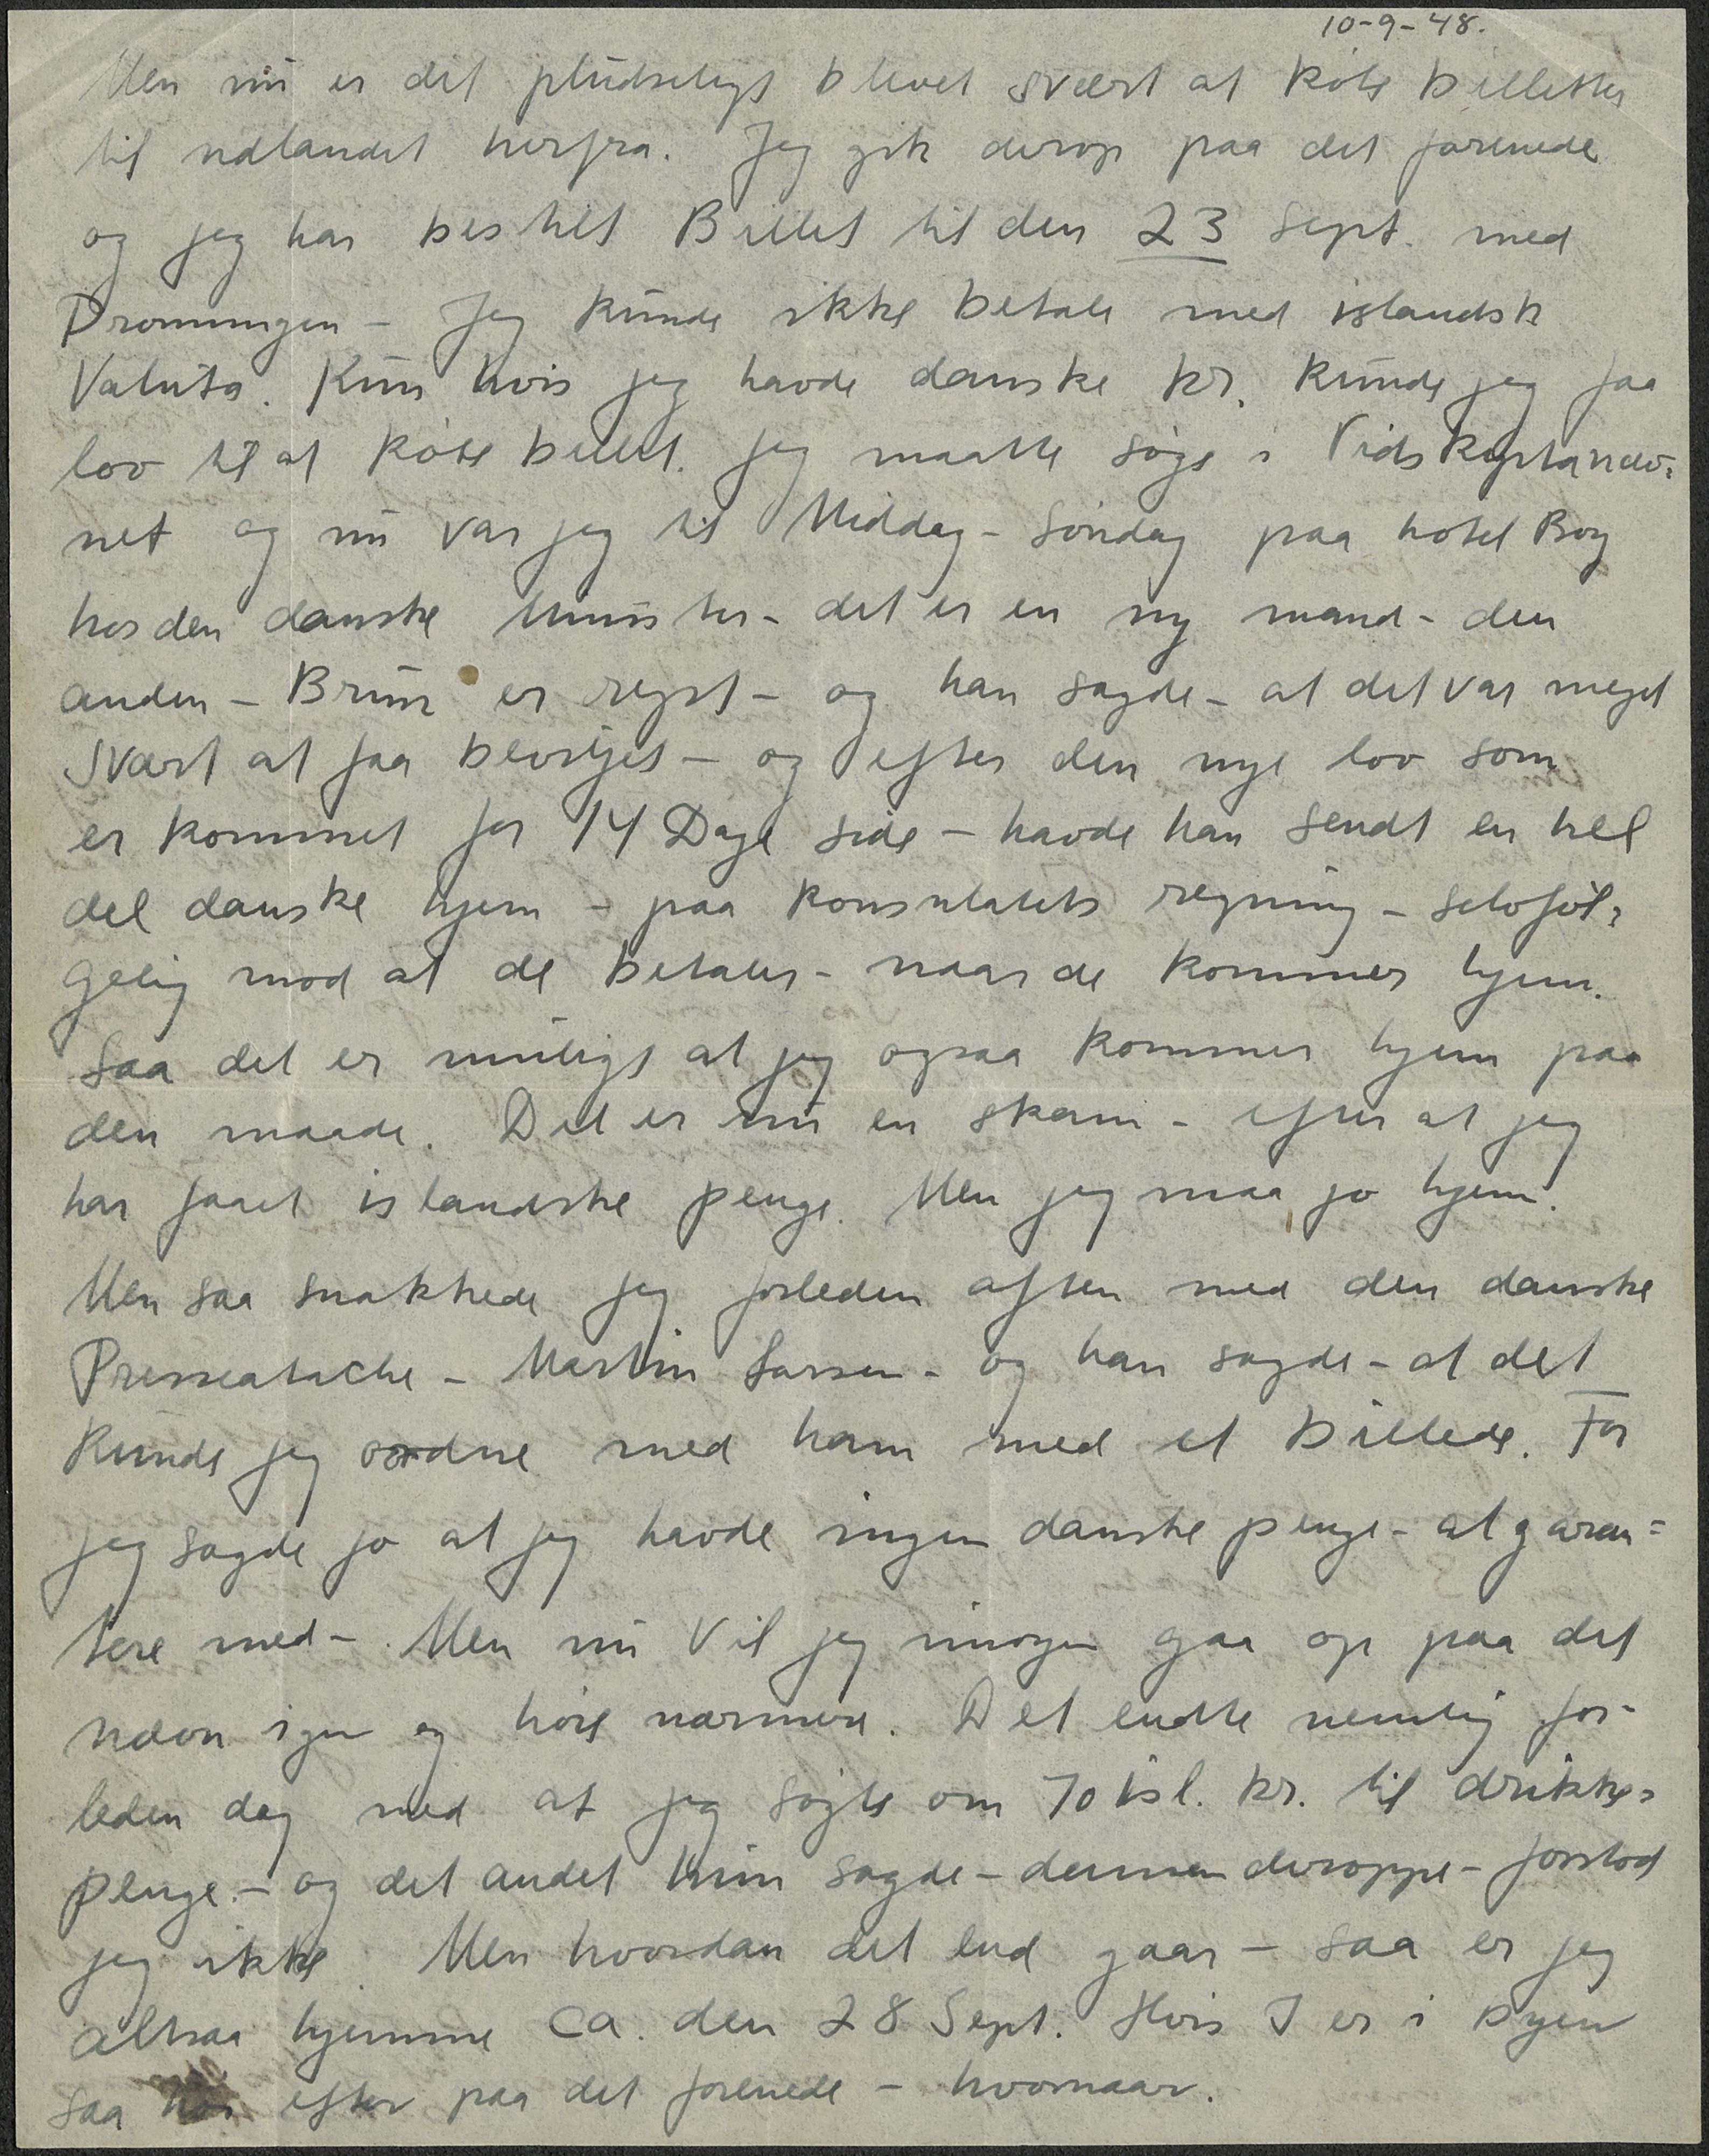 10-9-48.
Men nu er det pludseligt blevet svært at köbe billetter
til udlandet herfra. Jeg gik derop paa det forenede
og jeg har bestilt Billet til den 23 Sept. med
Dronningen - Jeg kunde ikke betale med islandsk
Valuta. Kun hvis jeg havde danske kr. kunde jeg faa
lov til at köbe billet. Jeg maatte söge i Vidskiptanæv=
net og nu var jeg til Middag - Söndag paa hotel Borg
hos den danske Minister - det er en ny mand - den
anden - Brun er rejst - og han sagde - at det var meget
Svært at faa bevilget - og efter den nye lov som
er kommet for 14 Dage side - havde han sendt en hel
del danske hjem - paa konsulatets regning - selvföl=
gelig mod at de betaler - naar de kommer hjem.
Saa det er muligt at jeg ogsaa kommer hjem paa
den maade. Det er nu en skam - efter at jeg
har faaet islandske penge. Men jeg maa jo hjem.
Men saa snakkede jeg forleden aften med den danske
Presseatache - Martin Larsen - og han sagde - at det
kunde jeg ordne med ham med et billede. For
jeg sagde jo at jeg havde ingen danske penge - at garan=
tere med - Men nu vil jeg imorgen gaa op paa det
nævn igen og höre nærmere. Det endte nemlig for-
leden dag med at jeg sögte om 70 isl. kr. til drikke=
penge. - og det andet hun sagde - damen deroppe - forstod
jeg ikke. Men hvordan det end gaar - saa er jeg
altsaa hjemme ca. den 28 Sept. Hvis I er i byen
saa hör efter paa det forenede - hvornaar.